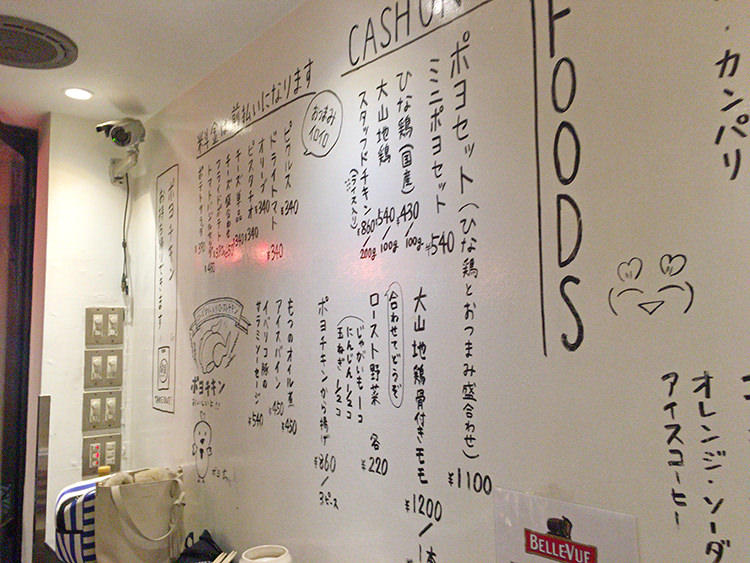 ・カンパリ
オレンジ・ソーダ
アイスコーヒー
FOODS
CASH ON
ポヨセット(ひな鶏とおつまみ盛合わせ) ¥1100
ミニポヨセット ¥540
ひな鶏(国産) ¥430/100g
大山地鶏 ¥540/100g
スタッフドチキン(ライス入り) ¥860/200g
大山地鶏骨付きモモ ¥1200/1本
合わせてどうぞ
ロースト野菜 各¥220
じゃがいも…1コ
にんじん…1/2コ
玉ねぎ…1/2コ
ポヨチキンから揚げ ¥860/3ピース
料金は前払いになります
おつまみイロイロ
ピクルス ¥340
ドライトマト ¥340
オリーブ ¥340
ピスタチオ ¥340
チーズ単品
チーズ盛合せ
もつのオイル煮 ¥450
アイスバイン ¥450
イベリコ豚の
サラミソーセージ ¥540
ポヨチキン
ポヨチキン
お持ち帰りできます
BELLEVUE